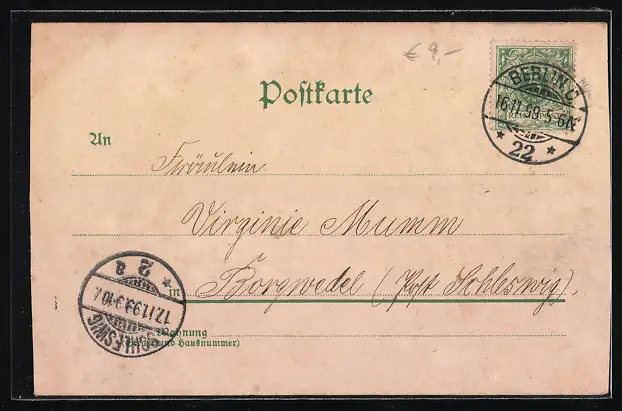 € 9,-
Postkarte
BERLIN, C
16.11.99.5-6N.
* 22 *
REICHSPOST
An
Fräulein
Virginie Mumm
in Borgwedel (Post Schleswig).
Wohnung
(Straße und Hausnummer)
SCHLESWIG
17.11.99.9-10V.
* 2 a